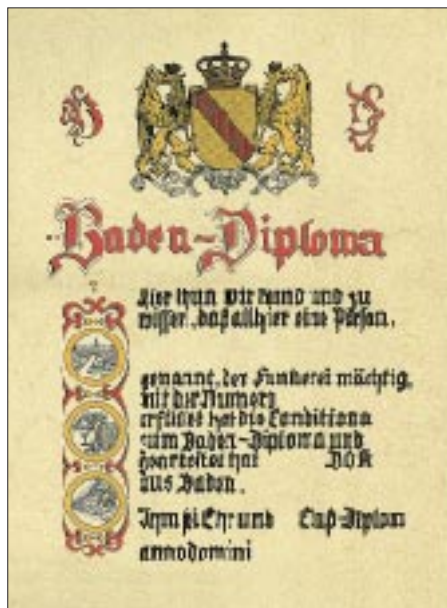 Baden-Diploma
Hier thun wir kund und zu
wissen, daß allhier eine Person,
genannt, der Funkerei mächtig,
mit der Numero
erfüllet hat die Conditiona
zum Baden-Diploma und
gearbeitet hat DOK
aus Baden.
Ihm sei Ehr und Diplom
annodomini